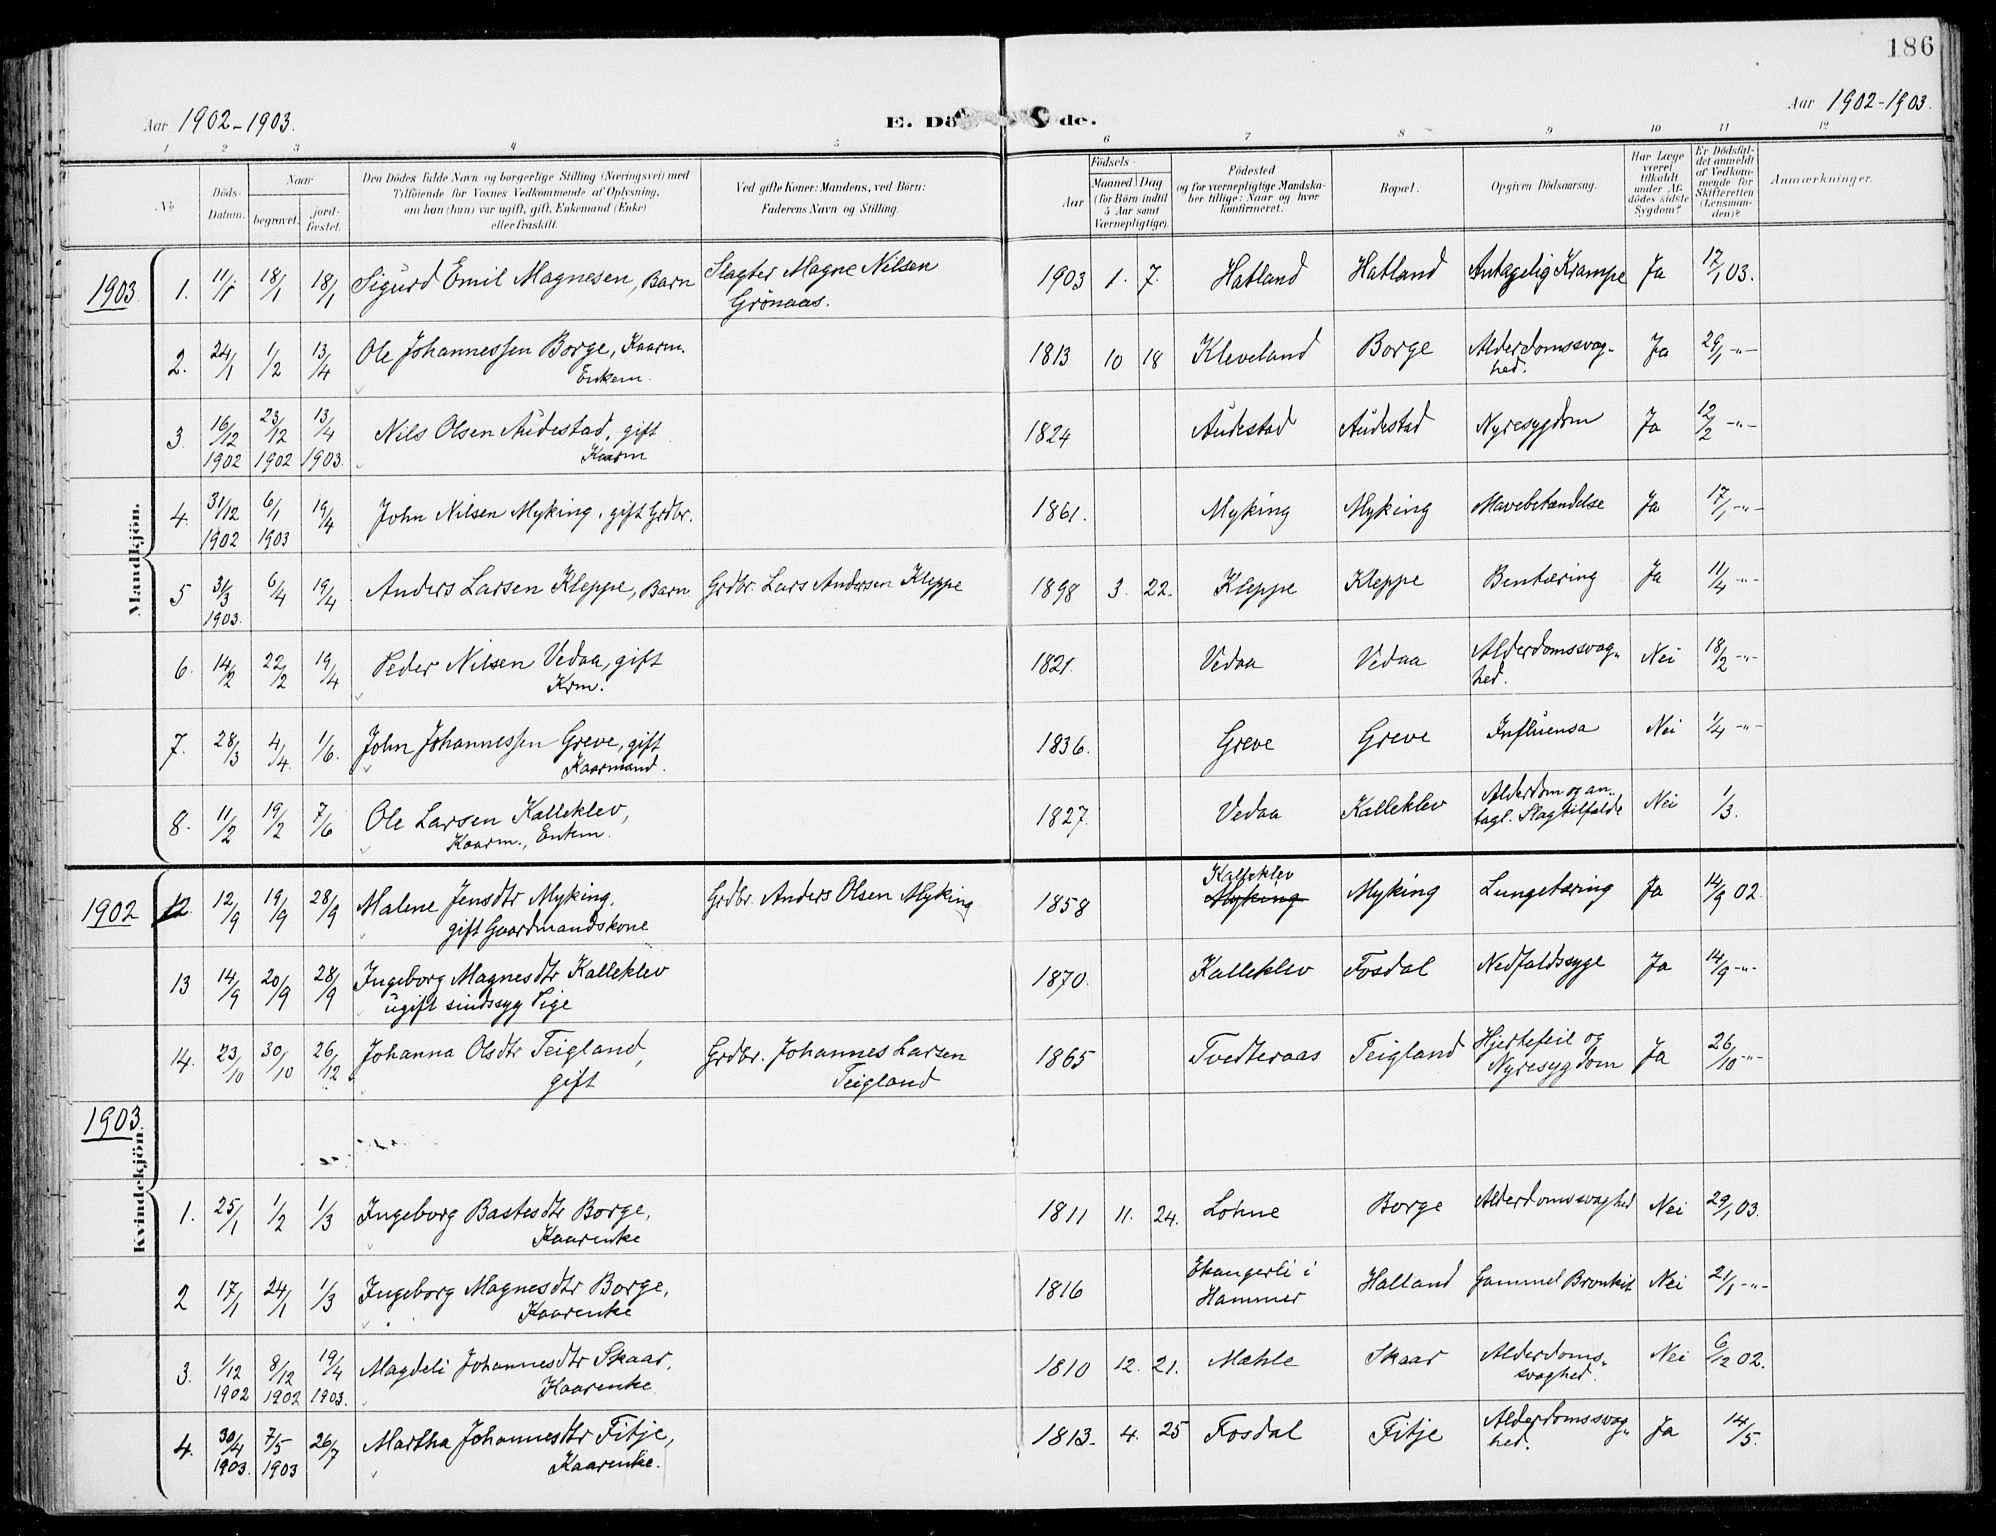 186
Aar 1902-1903.
E. Dö de.
Aar 1902-1903.
1 2 3 4 5 6 7 8 9 10 11 12
No
Döds-Datum.
Naar
begravet.
jordfæstet.
Den Dödes fulde Navn og borgerlige Stilling (Næringsvei) med
Tilföiende for Voxnes Vedkommende af Oplysning,
om han (hun) var ugift, gift, Enkemand (Enke)
eller fraskilt.
Ved gifte Koner: Mandens, ved Börn:
Faderens Navn og Stilling.
Födsels-
Aar
Maaned Dag
(for Börn indtil
5 Aar samt
Værnepligtige).
Födested
og for værnepligtige Mandskaber tillige: Naar og hvor
konfirmeret.
Bopæl.
Opgiven Dödsaarsag.
Har Læge
været
tilkaldt
under Afdödes sidste
Sygdom?
Er Dödsfaldet anmeldt
af Vedkommende for
Skifteretten
(Lensmanden)?
Anmærkninger.
Mandkjön.
1903 1. 11/1 18/1 18/1 Sigurd Emil Magnesen, Barn Slagter Magne Nilsen Grönaas. 1903 1. 7. Hatland Hatland Antagelig Krampe Ja 17/1 03.
2. 24/1 1/2 13/4 Ole Johannessen Borge, Kaarm. Enkem. 1813 10 18 Kleveland Borge Alderdomssvaghed. Ja 29/1 -"-
3. 16/12 1902 23/12 1902 13/4 1903. Nils Olsen Audestad, gift Kaarm 1824 Audestad Audestad Nyresygdom Ja 12/2 -"-
4. 31/12 1902 6/1 1903 19/4 John Nilsen Myking, gift Grdbr. 1861. Myking Myking Mavebetændelse Ja 17/1 -"-
5 31/3 1903. 6/4 19/4 Anders Larsen Kleppe, Barn Grdbr. Lars Andersen Kleppe 1898 3. 22. Kleppe Kleppe Bentæring Ja 11/4 -"-
6. 14/2 22/2 19/4 Peder Nilsen Vedaa, gift Krm. 1821. Vedaa Vedaa Alderdomssvaghed. Nei 18/2 -"-
7. 28/3 4/4. 1/6. John Johannessen Greve, gift Kaarmand. 1836. Greve Greve Influensa Nei 1/4 -"-
8. 11/2 19/2 7/6 Ole Larsen Kalleklev, Kaarm., Enkem. 1827. Vedaa Kalleklev Alderdom og antagl. Slagtilfælde Nei 1/3.
Kvindekjön.
1902 12. 12/9 19/9 28/9 Malene Jensdtr Myking, gift Gaardmandskone Grdbr. Anders Olsen Myking 1858 Kalleklev Myking Myking Lungetæring Ja 14/9 02.
13 14/9 20/9 28/9 Ingeborg Magnesdtr Kalleklev ugift sindssyg Pige 1870. Kalleklev Fosdal Nedfaldssyge Ja 14/9 -"-
14. 23/10 30/10 26/12 Johanna Olsdtr Teigland, gift Grdbr. Johannes Larsen Teigland 1865 Tvedteraas Teigland Hjertefeil og Nyresygdom Ja 26/10 -"-
1903
1. 25/1 1/2 1/3 Ingeborg Bastesdtr Borge, Kaarenke 1811 11. 24. Lohne Borge Alderdomssvaghed Nei 29/1 03.
2 17/1 24/1 1/3 Ingeborg Magnesdtr Borge, Kaarenke 1816 Ekangerli i Hammer Halland Gammel Bronkit Nei 21/1 -"-
3. 1/12 1902 8/12 1902 19/4 1903. Magdeli Johannesdtr Skaar, Kaarenke 1810 12. 21. Mæhle Skaar Alderdomssvaghed. Nei 6/12 02.
4. 30/4 1903. 7/5 1903 26/7 Martha Johannesdtr Fitje, Kaarenke. 1813. 4. 25 Fosdal Fitje Alderdomssvaghed. Ja 14/5.